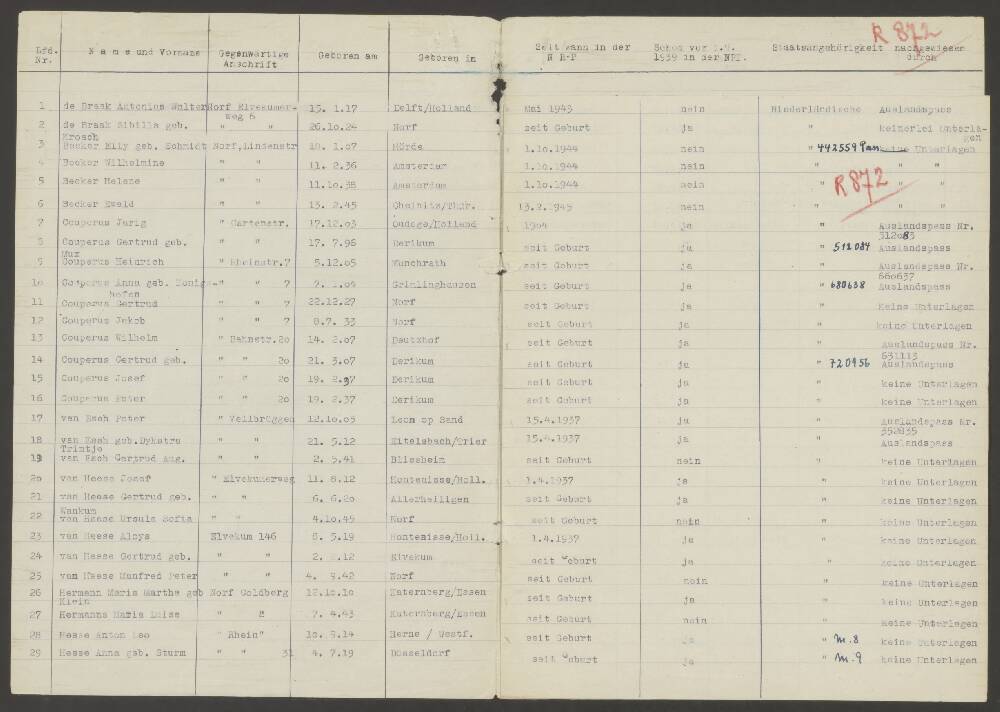 R 872
Lfd. Nr. Name und Vorname Gegenwärtige Anschrift Geboren am Geboren in Seit wann in der N R-P Schon vor 1.9. 1939 in der NPR. Staatsangehörigkeit nachgewiesen durch
1 de Braak Antonius Walter Norf Elvekumer- Weg 6 15. 1.17 Delft/Holland Mai 1943 nein Niederländische Auslandspass
2 de Braak Sibilla geb. Krosch " " 26.10.24 Norf seit Geburt ja " keinerlei Unterla- gen
3 Becker Elly geb. Schmidt Norf,Lindenstr 10. 1.07 Mörde 1.10.1944 nein " 442559 Pass keine Unterlagen
4 Becker Wilhelmine " " 11. 2.36 Amsterdam 1.10.1944 nein " " "
5 Becker Helene " " 11.10.38 Amsterdam 1.10.1944 nein " " "
R 872
6 Becker Ewald " " 13. 2.45 Chemnitz/Thür. 13.2.1945 nein " " "
7 Couperus Jurig " Gartenstr. 17.12.03 Oudega/Holland 1904 ja " Auslandspass Nr. 512083
8 Couperus Gertrud geb. Mux " " 17. 7.96 Derikum seit Geburt ja " 512084 Auslandspass
9 Couperus Heinrich " Rheinstr.7 5.12.05 Munchrath seit Geburt ja " Auslandspass Nr. 660637
10 Couperus Anna geb. Königs- hofen " " 7 7. 1.09 Grimlinghausen seit Geburt ja " 680638 Auslandspass
11 Couperus Gertrud " " 7 22.12.27 Norf seit Geburt ja " Keine Unterlagen
12 Couperus Jakob " " 7 8.7. 33 Norf seit Geburt ja " keine Unterlagen
13 Couperus Wilhelm " Bahnstr.20 14. 2.07 Deutzhof seit Geburt ja " Auslandspass Nr. 631113
14 Couperus Gertrud geb. " " 20 21. 3.07 Derikum seit Geburt ja " 720956 Auslandspass
15 Couperus Josef " " 20 19. 2.37 Derikum seit Geburt ja " keine Unterlagen
16 Couperus Peter " " 20 19. 2.37 Derikum seit Geburt ja " keine Unterlagen
17 van Esch Peter " Vellbrüggen 12.10.05 Loon op Sand 15.4.1937 ja " Auslandspass Nr. 352835
18 van Esch geb.Dykstra Trintje " " 21. 5.12 Eitelsbach/Trier 15.4.1937 ja " Auslandspass
19 van Esch Gertrud Aug. " " 2. 5.41 Bliesheim seit Geburt nein " keine Unterlagen
20 van Heese Josef " Elvekumerweg 11. 8.12 Hontenisse/Holl. 1.4.1937 ja " keine Unterlagen
21 van Heese Gertrud geb. Wankum " " 6. 6.20 Allerheiligen seit Geburt ja " keine Unterlagen
22 van Heese Ursula Sofia " " 4.10.45 Norf seit Geburt nein " keine Unterlagen
23 van Heese Aloys Elvekum 146 8. 5.19 Hontenisse/Holl. 1.4.1937 ja " keine Unterlagen
24 van Heese Gertrud geb. " " 2. 2.12 Elvekum seit Geburt ja " keine Unterlagen
25 van Heese Manfred Peter " " 4. 9.42 Norf seit Geburt nein " keine Unterlagen
26 Hermann Maria Martha geb Klein Norf Goldberg 12.10.10 Katernberg/Essen seit Geburt ja " keine Unterlagen
27 Hermanns Maria Luise " " 7. 4.43 Katernberg/Essen seit Geburt nein " keine Unterlagen
28 Hesse Anton Leo " Rhein" 10. 9.14 Herne / Westf. seit Geburt ja " M.8 keine Unterlagen
29 Hesse Anna geb. Sturm " " 31 4. 7.19 Düsseldorf seit Geburt ja " M.9 keine Unterlagen